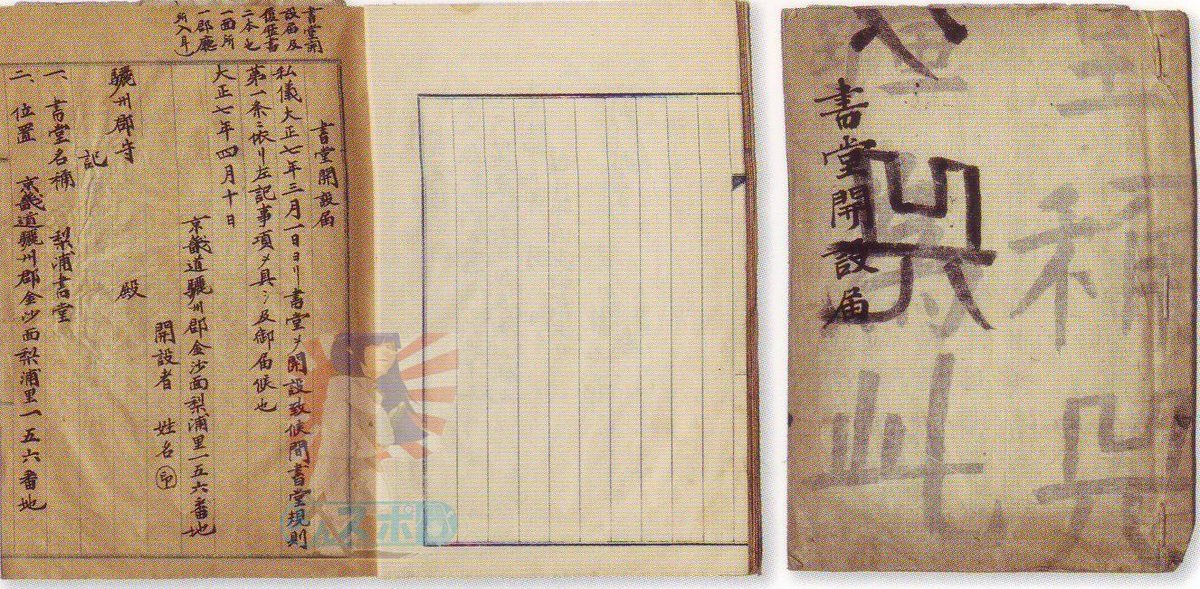 書堂開設届
書堂開
設届及
履歴書
二本也
一面所
一郡廳
所入耳)
書堂開設届
私儀大正七年三月一日ヨリ書堂ヲ開設致候間書堂規則
第一条ニ依リ左記事項ヲ具シ及御届候也
大正七年四月十日
京畿道驪州郡金沙面梨浦里一五六番地
開設者 姓名 印
驪州郡守 殿
記
一、書堂名稱 梨浦書堂
二、位置 京畿道驪州郡金沙面梨浦里一五六番地
スポ